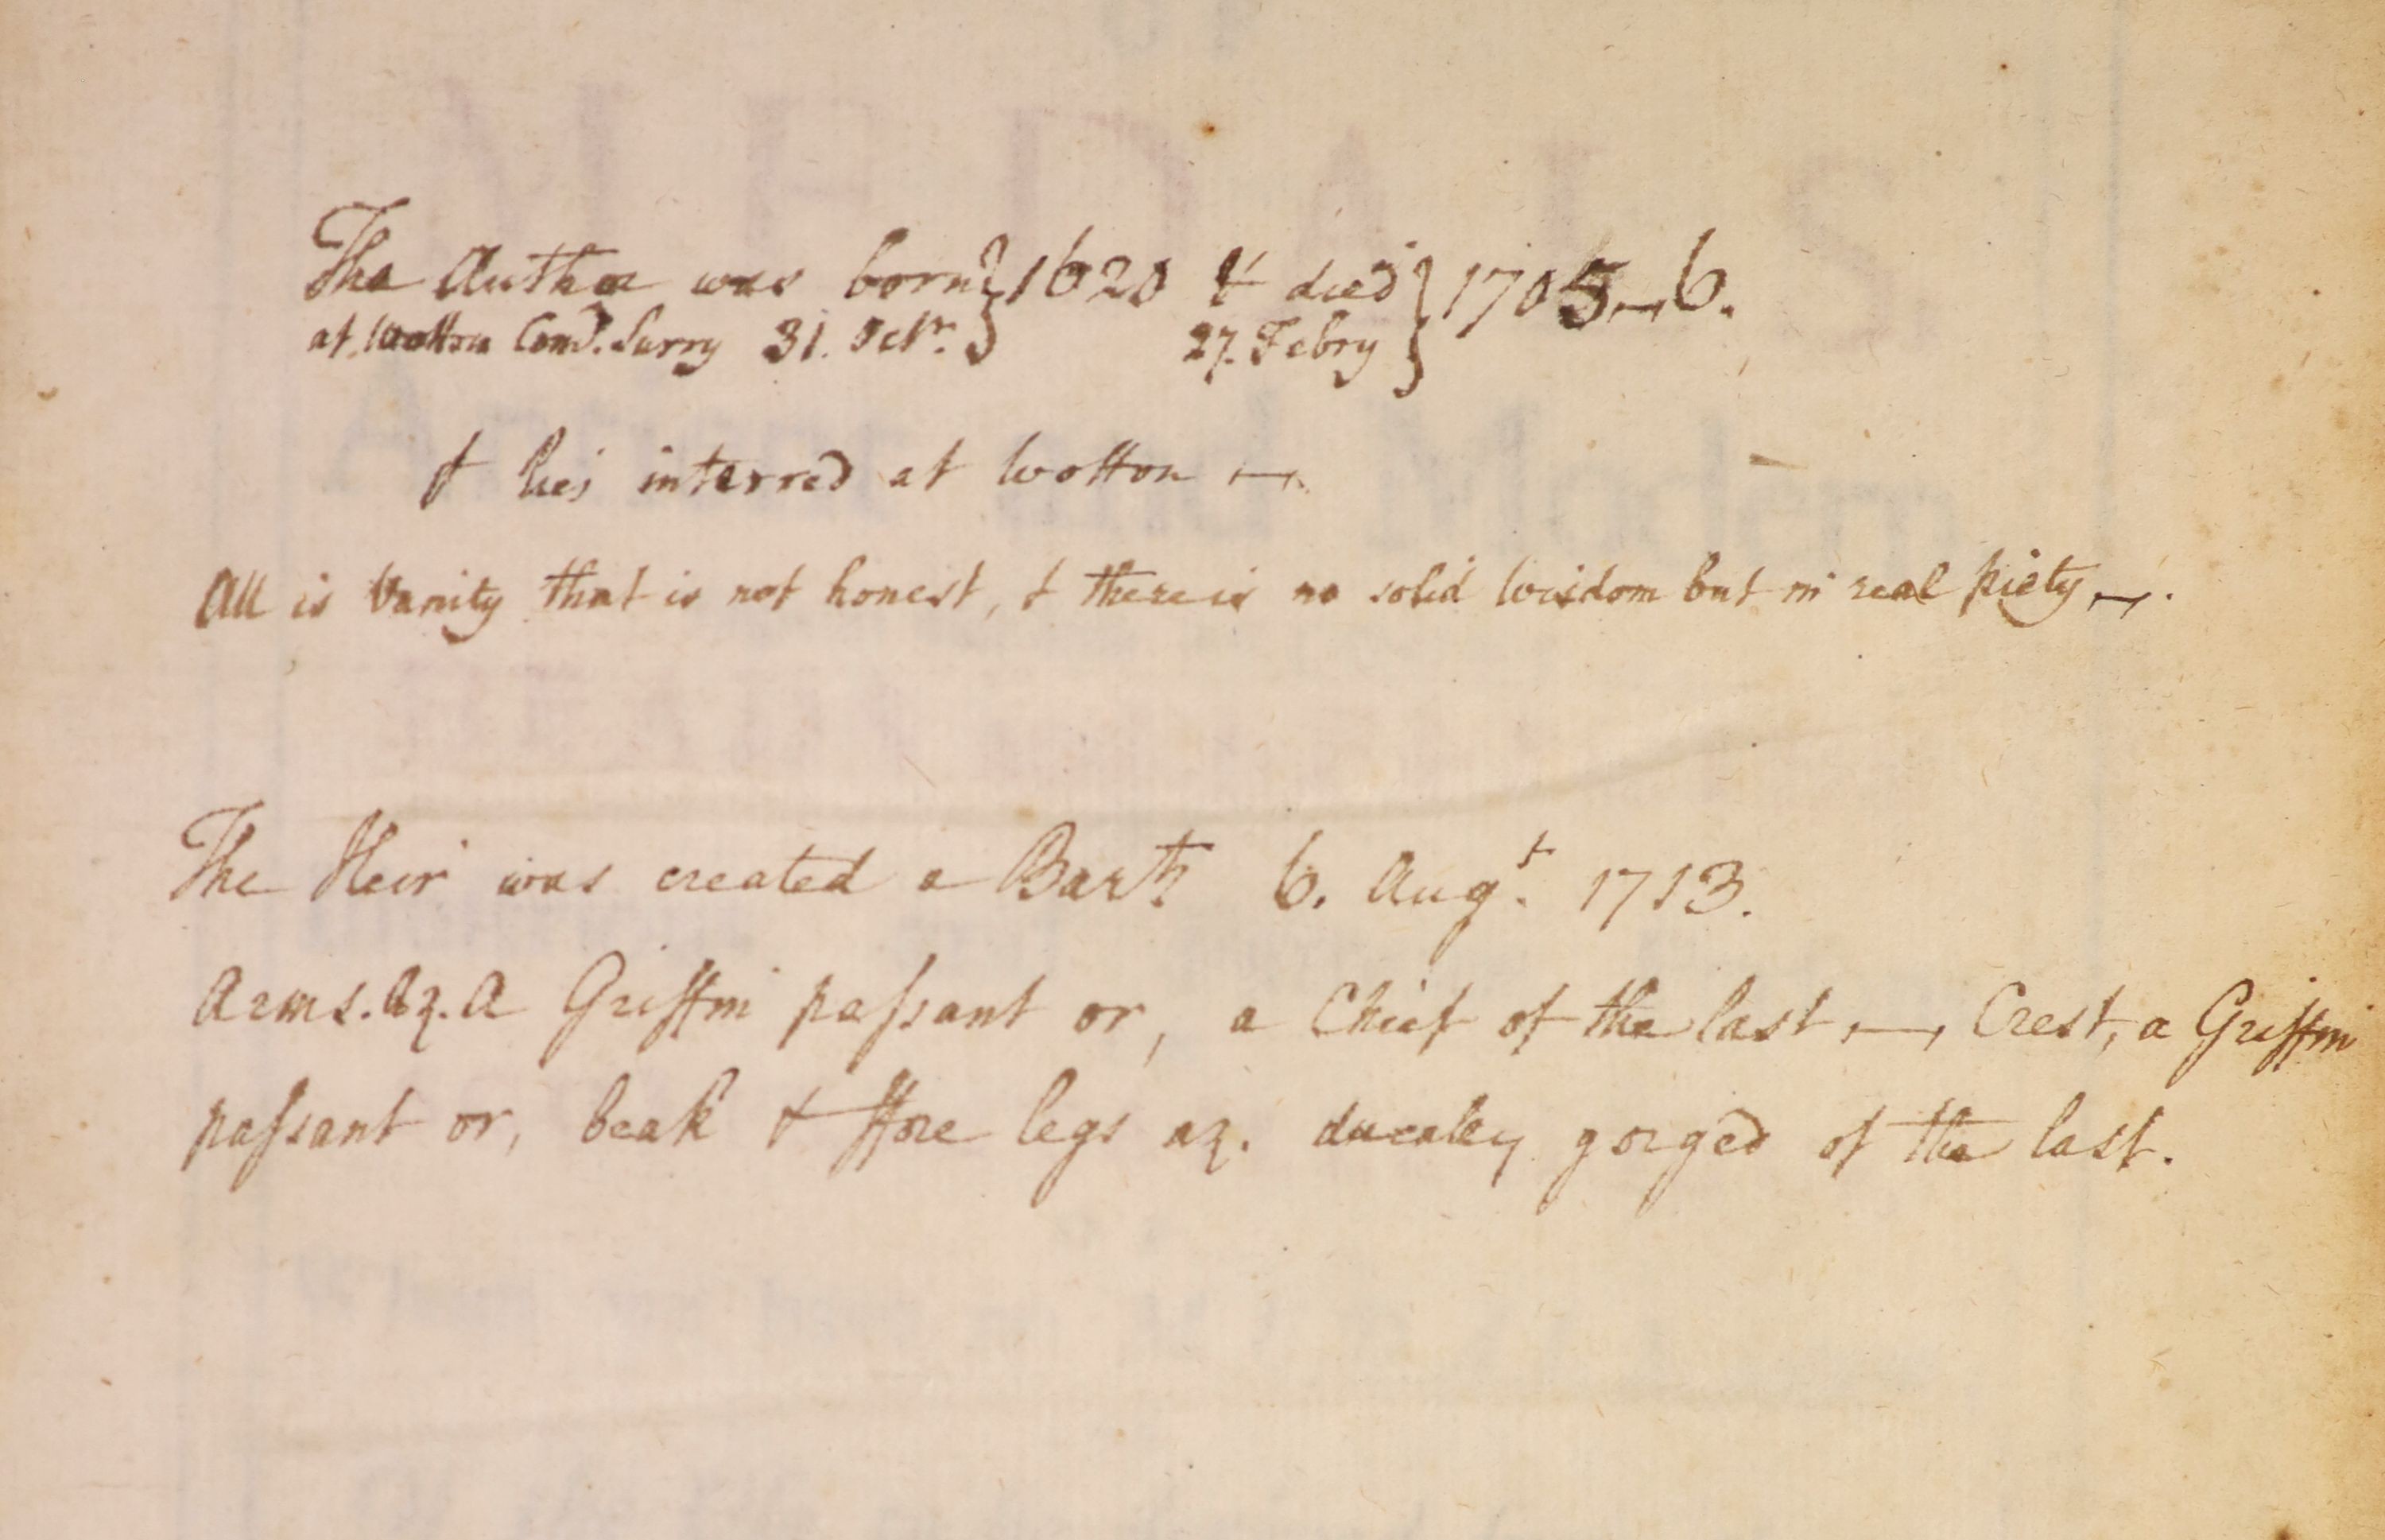 The Author was born } 1620 & died } 1705–6.
at Wotton Com. Surry 31. Octr. 27. Febry
& lies interred at Wotton –
All is Vanity that is not honest, & there is no solid Wisdom but in real piety –.
The Heir was created a Bart 6. Augt. 1713.
Arms. Az. A Griffin paſsant or, a Chief of the last –, Crest, a Griffin
paſsant or, beak & ffore legs az. ducaley gorged of the last.